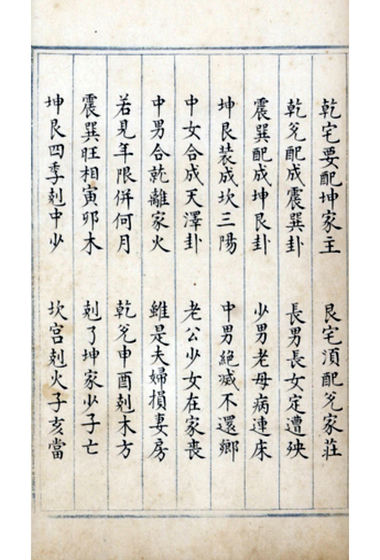 乾宅要配坤家主　艮宅須配兌家莊
乾兌配成震巽卦　長男長女定遭殃
震巽配成坤艮卦　少男老母病連床
坤艮裝成坎三陽　中男絶滅不還鄉
中女合成天澤卦　老公少女在家喪
中男合就離家火　雖是夫婦損妻房
若見年限併何月　乾兌申酉剋木方
震巽旺相寅卯木　剋了坤家少子亡
坤艮四季剋中少　坎宫剋火子亥當